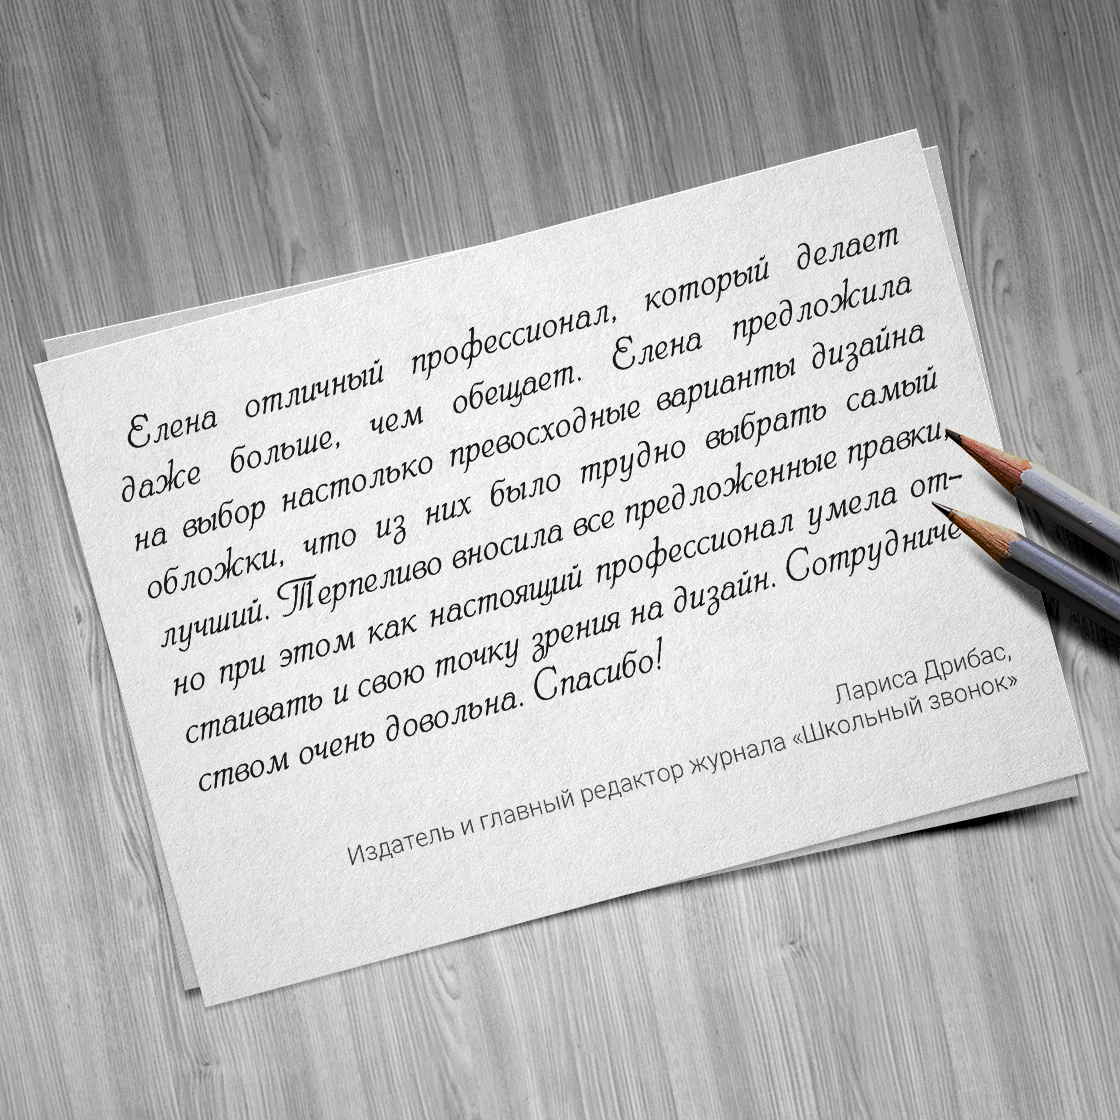 Елена отличный профессионал, который делает
даже больше, чем обещает. Елена предложила
на выбор настолько превосходные варианты дизайна
обложки, что из них было трудно выбрать самый
лучший. Терпеливо вносила все предложенные правки,
но при этом как настоящий профессионал умела от-
стаивать и свою точку зрения на дизайн. Сотрудниче
ством очень довольна. Спасибо!
Лариса Дрибас,
Издатель и главный редактор журнала «Школьный звонок»